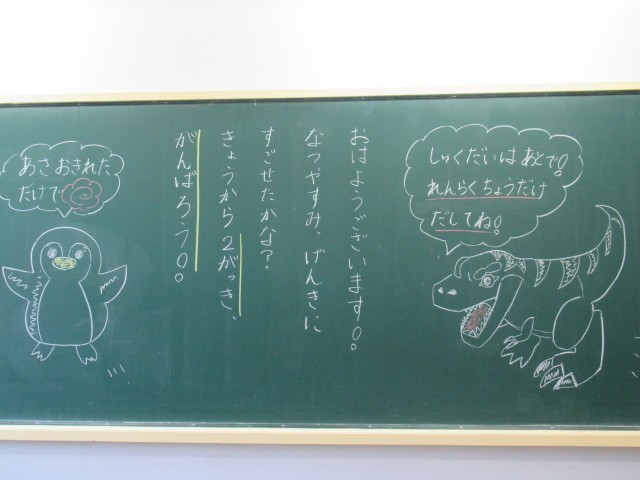 しゅくだいは あとで!
れんらくちょうだけ
だしてね!
おはようございます!
なつやすみ、げんきに
すごせたかな?
きょうから2がっき、
がんばろう!
あさ おきれた
だけで